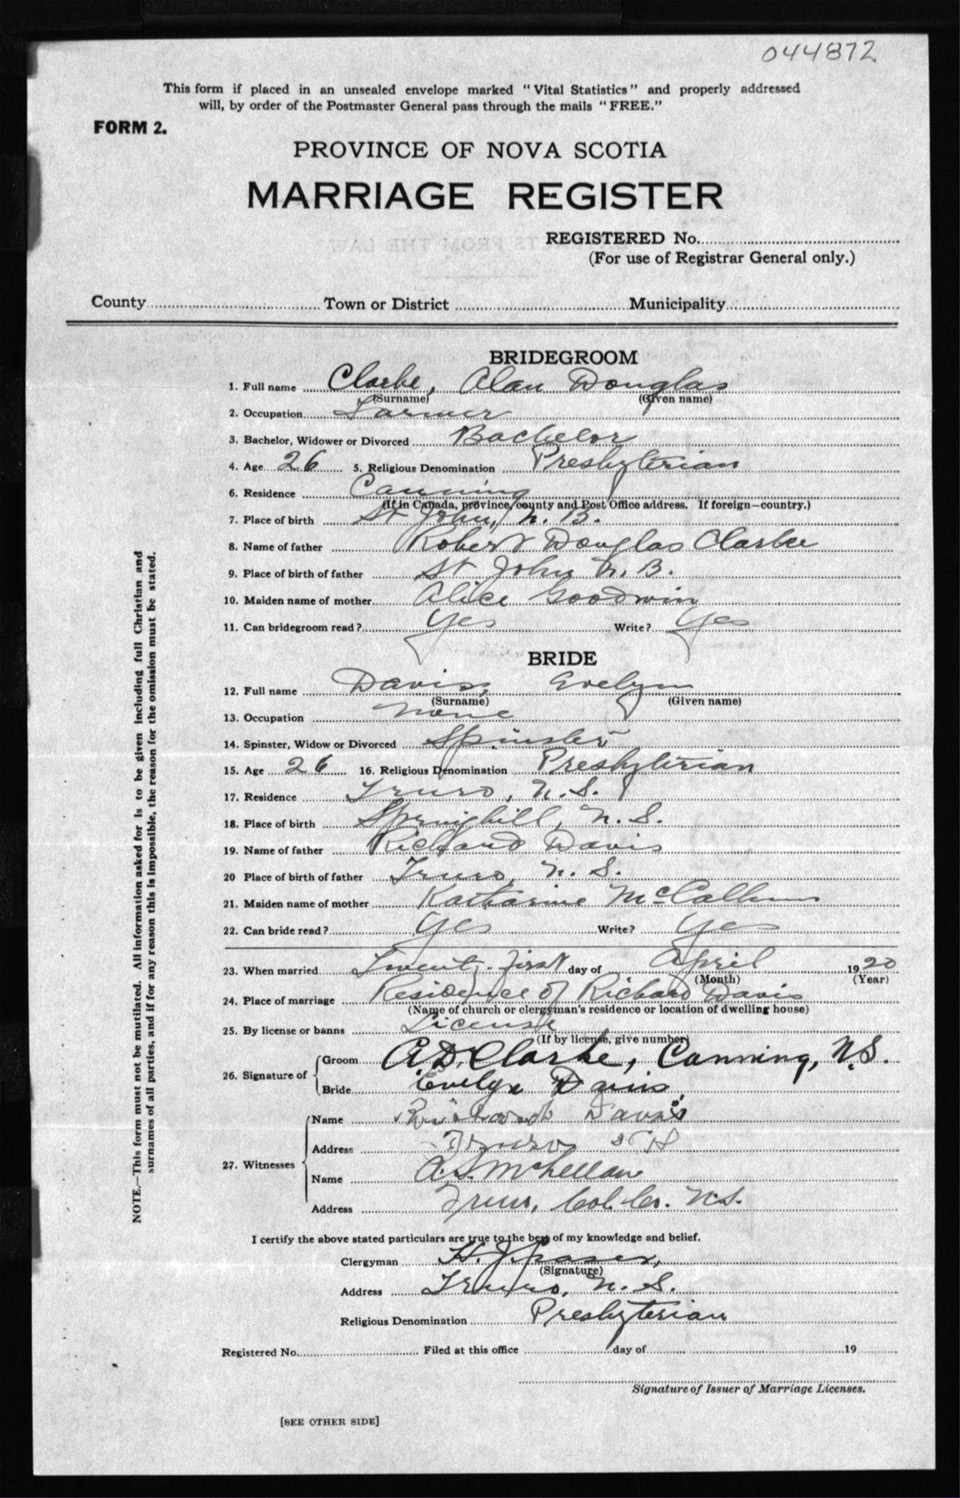 044872
This form if placed in an unsealed envelope marked "Vital Statistics" and properly addressed
will, by order of the Postmaster General pass through the mails "FREE."
FORM 2.
PROVINCE OF NOVA SCOTIA
MARRIAGE REGISTER
REGISTERED No.
(For use of Registrar General only.)
County Town or District Municipality
BRIDEGROOM
1. Full name Clarke, Alan Douglas
(Surname) (Given name)
2. Occupation Farmer
3. Bachelor, Widower or Divorced Bachelor
4. Age 26 5. Religious Denomination Presbyterian
6. Residence Canning
(If in Canada, province, county and Post Office address. If foreign—country.)
7. Place of birth St John, N. B.
8. Name of father Robert Douglas Clarke
9. Place of birth of father St John N. B.
10. Maiden name of mother Alice Goodwin
11. Can bridegroom read? Yes Write? Yes
BRIDE
12. Full name Davis, Evelyn
(Surname) (Given name)
13. Occupation None
14. Spinster, Widow or Divorced Spinster
15. Age 26 16. Religious Denomination Presbyterian
17. Residence Truro, N. S.
18. Place of birth Springhill, N. S.
19. Name of father Richard Davis
20 Place of birth of father Truro, N. S.
21. Maiden name of mother Katharine
22. Can bride read? Yes Write? Yes
23. When married Twenty-first day of April 1920
(Month) (Year)
24. Place of marriage Residence of Richard Davis
(Name of church or clergyman's residence or location of dwelling house)
25. By license or banns License
(If by license, give number)
26. Signature of Groom A. D. Clarke, Canning, N.S.
Bride Evelyn Davis
27. Witnesses Name Richard Davis
Address Truro
Name A. S. McLellan
Address Truro, Col. Co. N.S.
I certify the above stated particulars are true to the best of my knowledge and belief.
Clergyman H. J. Fraser,
(Signature)
Address Truro, N. S.
Religious Denomination Presbyterian
Registered No. Filed at this office day of 19
Signature of Issuer of Marriage Licenses.
[SEE OTHER SIDE]
NOTE.—This form must not be mutilated. All information asked for is to be given including full Christian and
surnames of all parties, and if for any reason this is impossible, the reason for the omission must be stated.